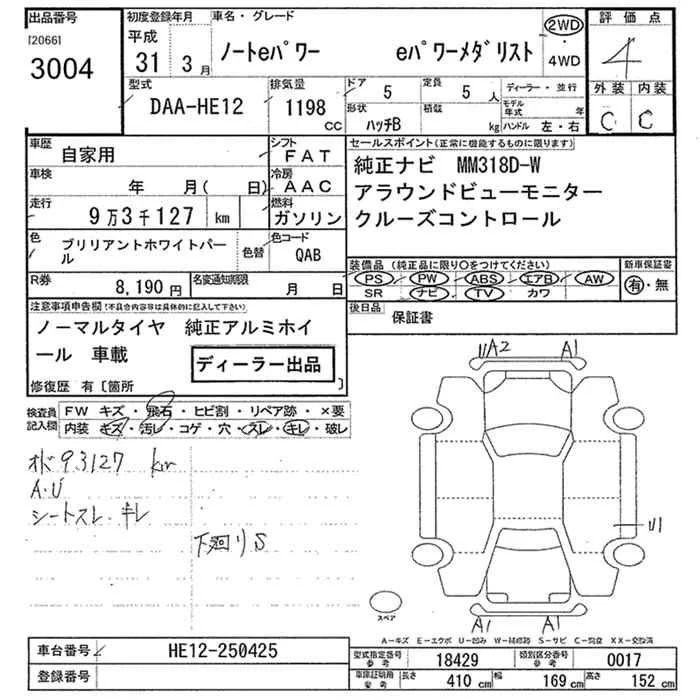 出品番号
[2066]
3004
初度登録年月
平成
31年 3月
車名・グレード
ノートeパワー eパワーメダリスト
2WD
・
4WD
評価点
4
外装 内装
C C
型式
DAA-HE12
排気量
1198
CC
ドア
5
定員
5人
形状
ハッチB
積載
kg
ディーラー・並行
モデル年式 年
ハンドル 左・右
車歴
自家用
シフト
FAT
車検
年 月( 日)
冷房
AAC
走行
9万3千127 km
燃料
ガソリン
色
ブリリアントホワイトパール
色替
色コード
QAB
R券
8,190円
名変通知期限
月 日
セールスポイント(正常に機能するものに限ります)
純正ナビ MM318D-W
アラウンドビューモニター
クルーズコントロール
装備品 (純正品に限り〇をつけてください)
PS PW ABS エアB AW
SR ナビ TV カワ
新車保証書
有・無
後日品
保証書
注意事項申告欄(不具合内容等は具体的に記入して下さい)
ノーマルタイヤ 純正アルミホイ
ール 車載
ディーラー出品
修復歴 有〔箇所 〕
検査員記入欄
FW キズ・飛石・ヒビ割・リペア跡・×要
内装 キズ・汚レ・コゲ・穴・スレ・キレ・破レ
オド93127 km
A・U
シートスレ・キレ
下廻りS
A2 A1
U1
A1 A1
スペア
A-キズ E-エクボ U-凹み W-補修跡 S-サビ C-腐食 XX-交換済
車台番号
HE12-250425
登録番号
型式指定番号
参考
18429
類別区分番号
参考
0017
車庫証明用
参考
長さ 410cm 幅 169cm 高さ 152cm